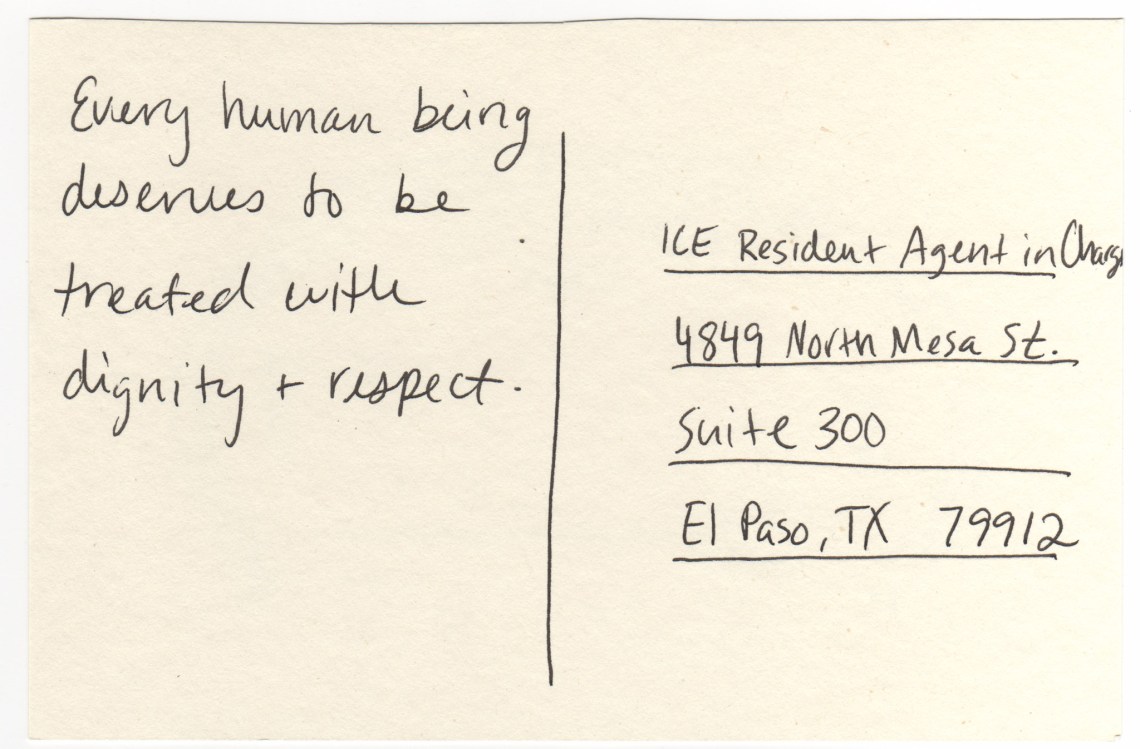 Every human being
deserves to be
treated with
dignity + respect.
ICE Resident Agent in Charge
4849 North Mesa St.
Suite 300
El Paso, TX 79912